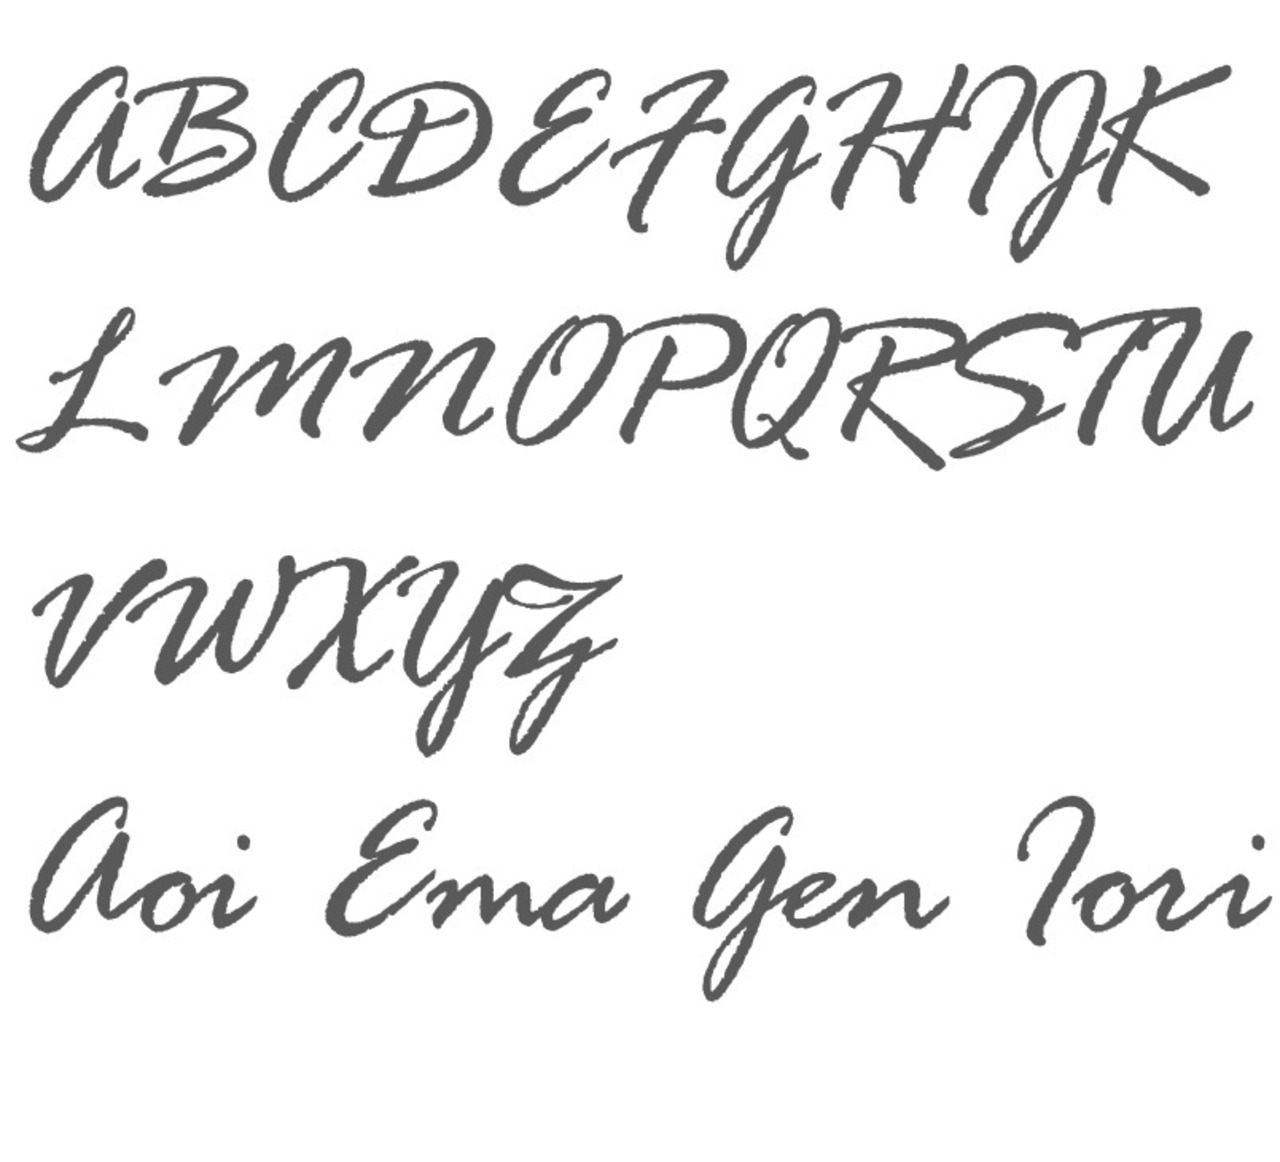 ABCDEFGHIJK
LMNOPQRSTU
VWXYZ
Aoi Ema Gen Iori